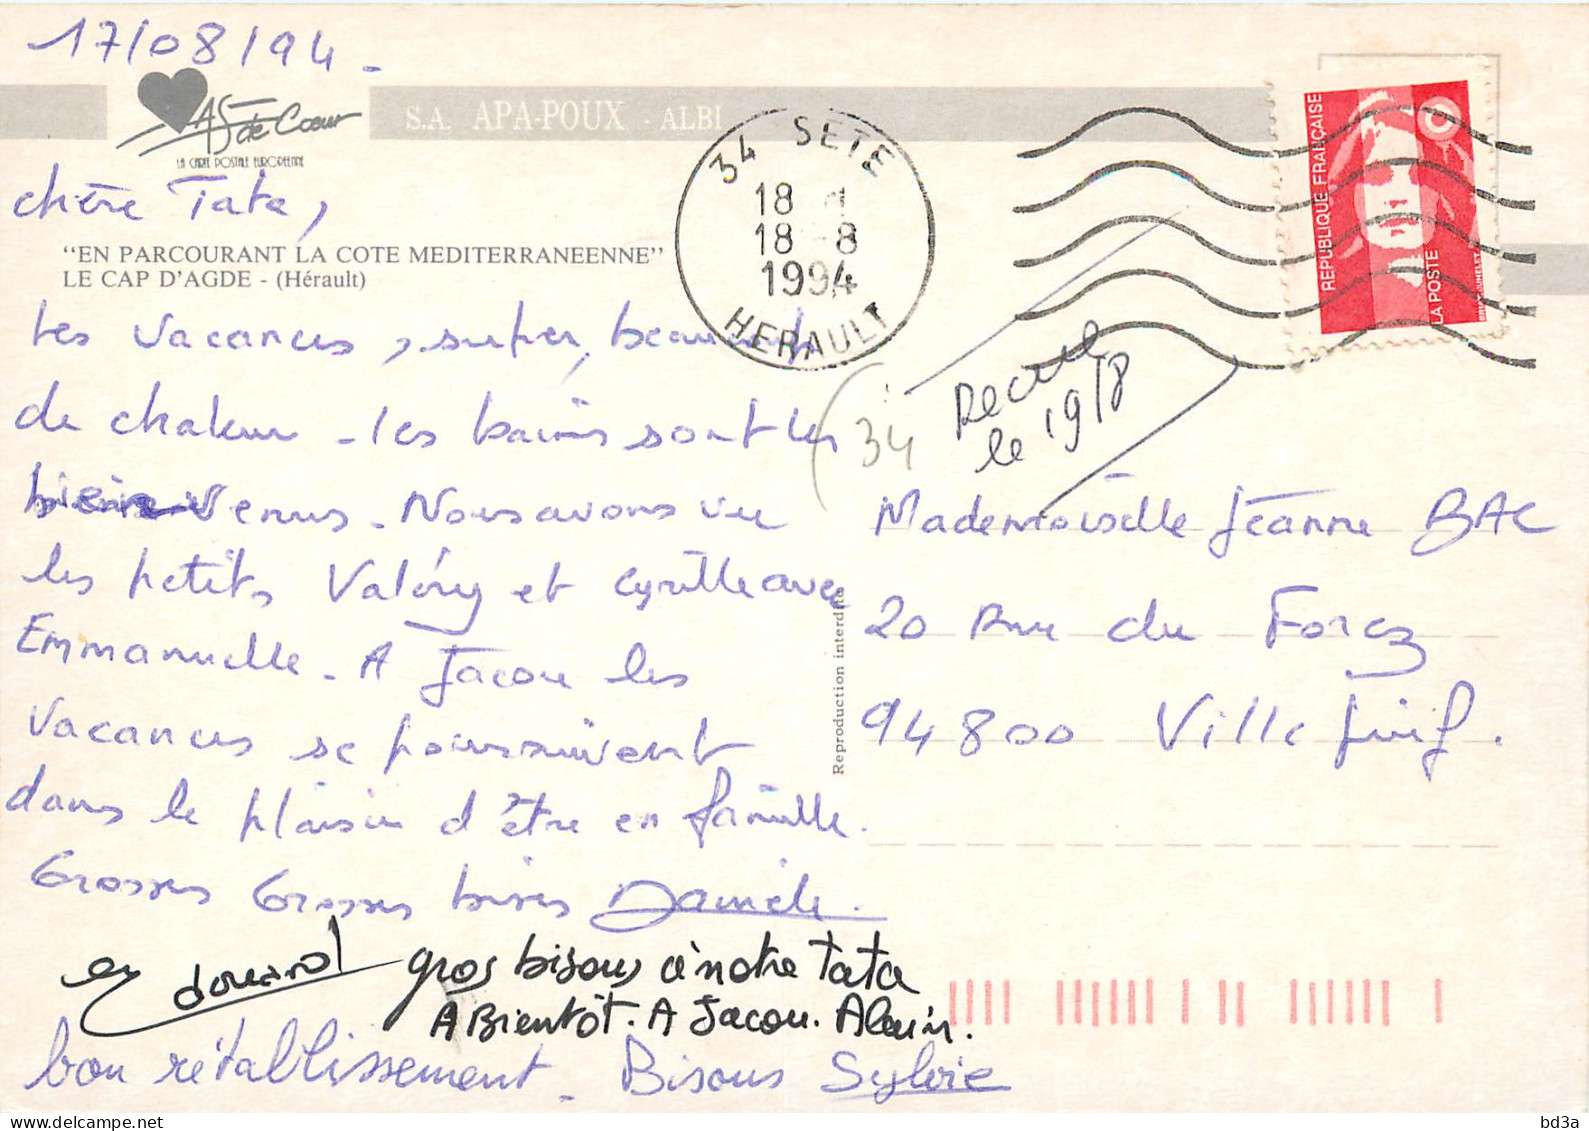 17/08/94 -
AS de Cœur
LA CARTE POSTALE EUROPÉENNE
S.A. APA-POUX - ALBI
34 SETE
18
18 - 8
1994
HERAULT
REPUBLIQUE FRANÇAISE
LA POSTE
chère Tata,
"EN PARCOURANT LA COTE MEDITERRANEENNE"
LE CAP D'AGDE - (Hérault)
Les vacances, super, beaucoup
de chaleur - les bains sont les
bien venus - Nous avons vu
les petits Valéry et Cyrille avec
Emmanuelle - A Jacou les
vacances se poursuivent
dans le plaisir d'être en famille.
Grosses Grosses bises Danièle.
gros bisous à notre Tata
A Bientôt. A Jacou. Alain.
bon rétablissement - Bisous Sylvie
34
Recue
le 19/8
Mademoiselle Jeanne BAC
20 Rue du Forez
94800 Villejuif.
Reproduction interdite
bd3a